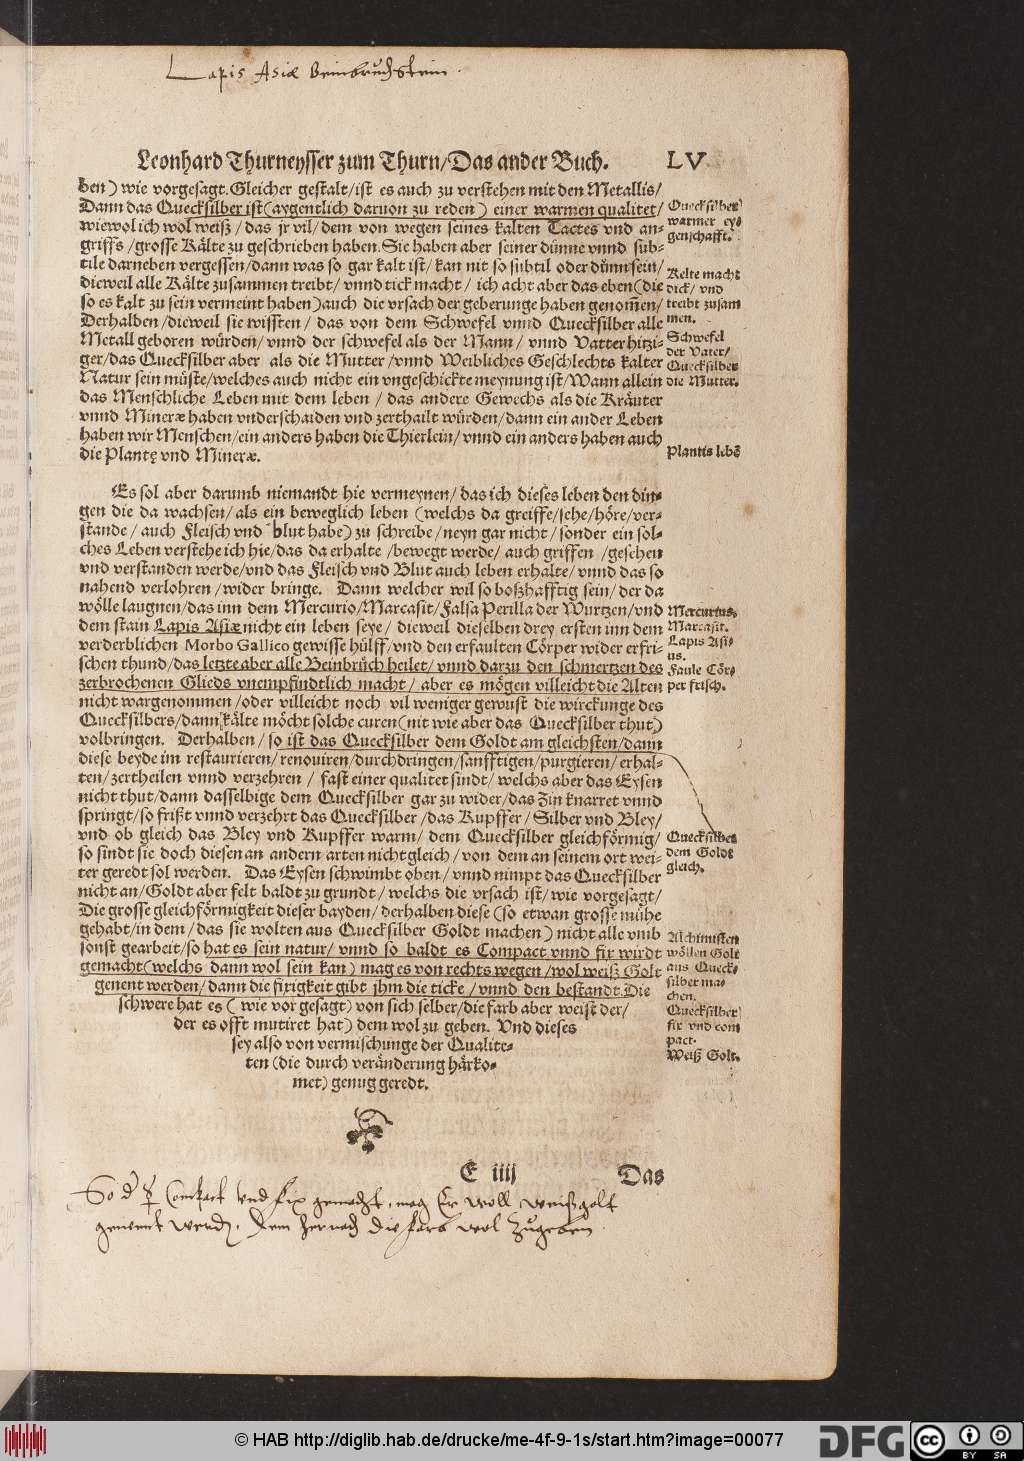 Lapis Asiæ Beinbruchstein.
Leonhard Thurneysser zum Thurn/Das ander Buch. LV
ben) wie vorgesagt. Gleicher gestalt/ist es auch zu verstehen mit den Metallis/
Dann das Quecksilber ist (aygentlich daruon zu reden) einer warmen qualitet/
wiewol ich wol weiß/das jr vil/dem von wegen seines kalten Tactes vnd an-
griffs/grosse Kälte zu geschrieben haben. Sie haben aber seiner dünne vnnd sub-
tile darneben vergessen/dann was so gar kalt ist/kan nit so subtil oder dünn sein/
dieweil alle Kälte zusammen treibt/vnnd tick macht/ich acht aber das eben (die
so es kalt zu sein vermeint haben) auch die vrsach der geberunge haben genom̄en/
Derhalben/dieweil sie wissten/das von dem Schwefel vnnd Quecksilber alle
Metall geboren würden/vnnd der schwefel als der Mann/vnnd Vatter hitzi-
ger/das Quecksilber aber als die Mutter/vnnd Weibliches Geschlechts kalter
Natur sein müste/welches auch nicht ein vngeschickte meynung ist/Wann allein
das Menschliche Leben mit dem leben/das andere Gewechs als die Kräuter
vnnd Mineræ haben vnderschaiden vnd zerthailt würden/dann ein ander Leben
haben wir Menschen/ein anders haben die Thierlein/vnnd ein anders haben auch
die Plantę vnd Mineræ.
Quecksilber
warmer ey-
genschafft.
Kelte macht
dick/vnd
treibt zusam
men.
Schwefel
der Vater/
Quecksilber
die Mutter.
Plantis lebē
Es sol aber darumb niemandt hie vermeynen/das ich dieses leben den din-
gen die da wachsen/als ein beweglich leben (welchs da greiffe/sehe/höre/ver-
stande/auch Fleisch vnd blut habe) zu schreibe/neyn gar nicht/sonder ein sol-
ches Leben verstehe ich hie/das da erhalte/bewegt werde/auch griffen/gesehen
vnd verstanden werde/vnd das Fleisch vnd Blut auch leben erhalte/vnnd das so
nahend verlohren/wider bringe. Dann welcher wil so boßhafftig sein/der da
wölle laugnen/das inn dem Mercurio/Marcasit/Falsa Perilla der Wurtzen/vnd
dem stain Lapis Asiæ nicht ein leben seye/dieweil dieselben drey ersten inn dem
verderblichen Morbo Gallico gewisse hülff/vnd den erfaulten Cörper wider erfri-
schen thund/das letzte aber alle Beinbrüch heilet/vnnd darzu den schmertzen des
zerbrochenen Glieds vnempfindtlich macht/aber es mögen villeicht die Alten
nicht wargenommen/oder villeicht noch vil weniger gewust die wirckunge des
Quecksilbers/dann kälte möcht solche curen (nit wie aber das Quecksilber thut)
volbringen. Derhalben/so ist das Quecksilber dem Goldt am gleichsten/dann
diese beyde im restaurieren/renouiren/durchdringen/sanfftigen/purgieren/erhal-
ten/zertheilen vnnd verzehren/fast einer qualitet sindt/welchs aber das Eysen
nicht thut/dann dasselbige dem Quecksilber gar zu wider/das Zin knarret vnnd
springt/so frißt vnnd verzehrt das Quecksilber/das Kupffer/Silber vnd Bley/
vnd ob gleich das Bley vnd Kupffer warm/dem Quecksilber gleichförmig/
so sindt sie doch diesen an andern arten nicht gleich/von dem an seinem ort wei-
ter geredt sol werden. Das Eysen schwimbt oben/vnnd nimpt das Quecksilber
nicht an/Goldt aber felt baldt zu grundt/welchs die vrsach ist/wie vorgesagt/
Die grosse gleichförmigkeit dieser bayden/derhalben diese (so etwan grosse mühe
gehabt/in dem/das sie wolten aus Quecksilber Goldt machen) nicht alle vmb
sonst gearbeit/so hat es sein natur/vnnd so baldt es Compact vnnd fix wirdt
gemacht (welchs dann wol sein kan) mag es von rechts wegen/wol weiß Golt
genent werden/dann die fixigkeit gibt jhm die ticke/vnnd den bestandt. Die
schwere hat es (wie vorgesagt) von sich selber/die farb aber weist der/
der es offt mutiret hat) dem wol zu geben. Vnd dieses
sey also von vermischunge der Qualite-
ten (die durch veränderung härko-
met) genug geredt.
Mercurius.
Marcasit.
Lapis Asi-
us.
Faule Cör-
per frisch.
Quecksilber
dem Goldt
gleich.
Alchimisten
wöllen Golt
aus Queck-
silber ma-
chen.
Quecksilber
fix vnd com
pact.
Weiß Golt.
E iiij Das
So d ☿ Compact vnd fix gemacht, mag Er woll weißgolt
genent werdē. Dem hernach die farb wol Zugeben.
© HAB http://diglib.hab.de/drucke/me-4f-9-1s/start.htm?image=00077
DFG
cc
BY SA